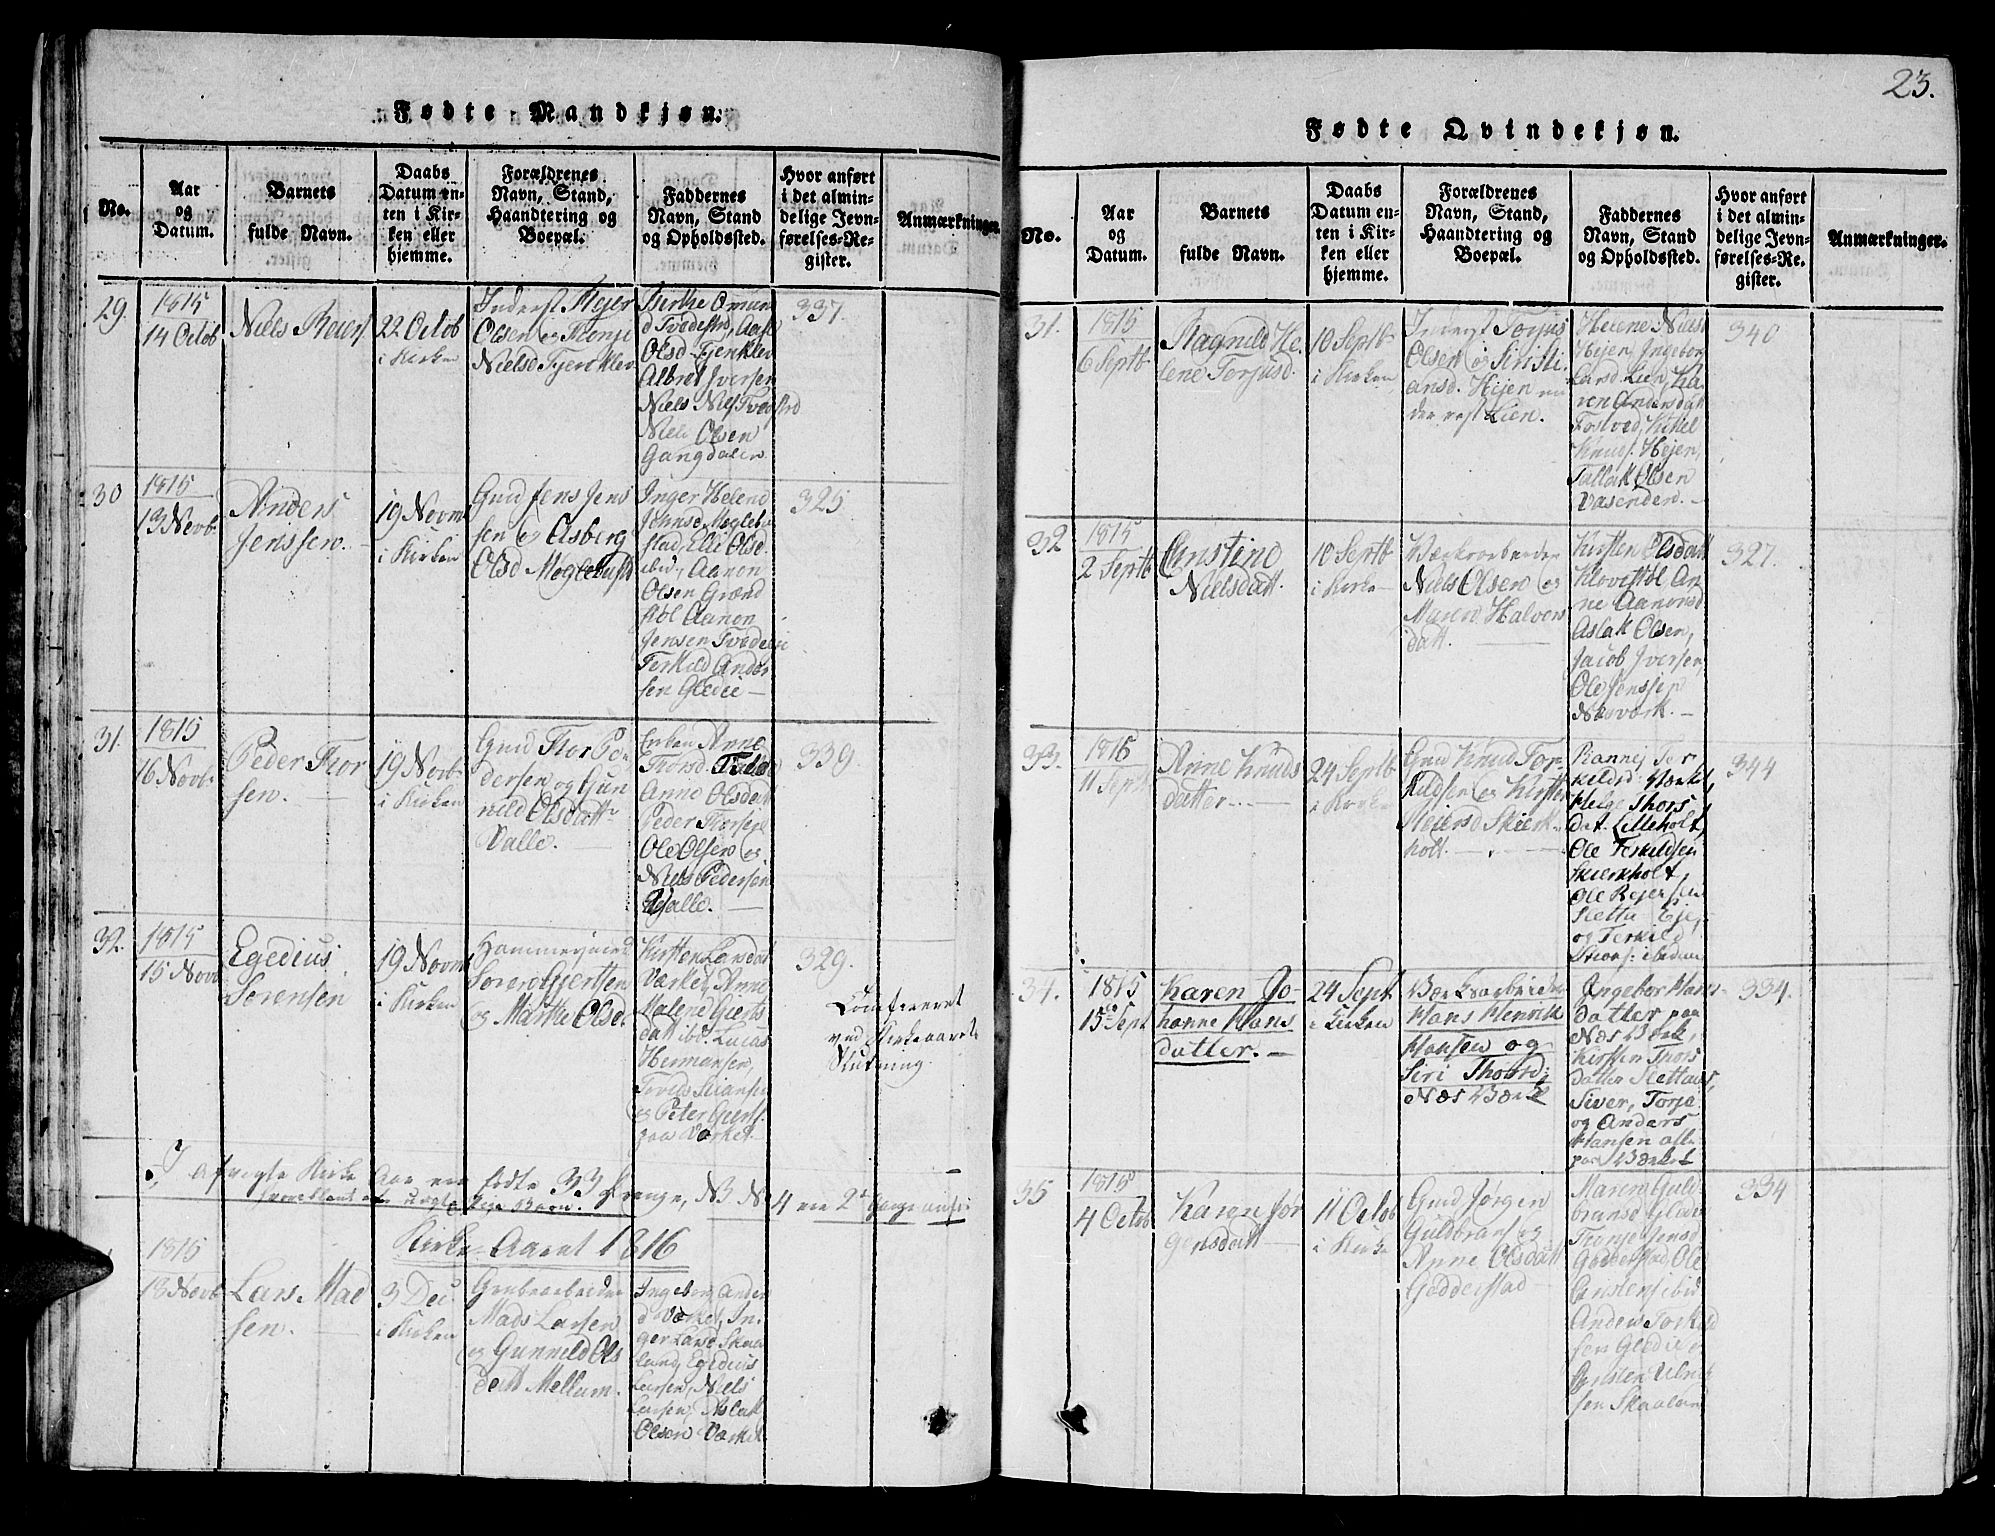 Fødte Mandkjøn.
No.
Aar
og
Datum.
Barnets
fulde Navn.
Daabs
Datum en-
ten i Kir-
ken eller
hjemme.
Forældrenes
Navn, Stand,
Haandtering og
Boepæl.
Faddernes
Navn, Stand
og Opholdssted.
Hvor anført
i det almin-
delige Jevn-
førelses-Re-
gister.
Anmærkninger.
29.
1815
14 Octob
Niels Reiers
22 Octob
i Kirken
Inderst Rejer
Olsen og Tronje
Nielsd Fjereklev
Olsd Fjereklev
Albret Iversen
Niels Niels Tvedestrd
Niels Olsen
Gangdalen
337.
30
1815
13 Novb.
Anders
Jenssen.
19 Novmb
i Kirken
Gmd Jens Jens
sen og Asberg
Olsd Møglebust
Inger Helene
Johnsd Møglebu
stad, Elie Olsd.
ibid, Aanon
Olsen Grønd
støl Aanon
Jensen Tvede
Terkild Ander
sen Gledie —
325
31.
1815
16 Novb.
Peder Thor
sen. —
19 Novb.
i Kirken
Gmd Thor Pe-
dersen og Gun
nild Olsdatt
Valle. —
Enken Anne
Thorsd
Anne Olsdatt
Peder Thorsen
Ole Olsen og
Niels Pedersen
Valle. —
339.
32.
1815
15 Novb
Egedius
Sørensen
19 Novmb
i Kirken
Hammersmed
Søren Giertsen
og Marthe Olsd.
Kirsten Larsdat
Værket, Anne
Malene Gierts
datt ibd. Lucas
Hermansen,
og Peter Gierts
paa Værket
329.
Comfereret
ved Kirkeaarets
Slutning.
I afvigte Kirke Aar ere fødte 33 Drenge, NB No 4 ere 2de Gange anført
Kirke-Aaret 1816
1815
18 Novb
Lars Mad
sen. —
3 Dec.
i Kirken
Grubearbeider
Mads Larsen
og Gunnild Ols
datt Mellum.
Ingeborg Ander
d Værket, In
ger Larsd Skaa
land, Egedius
Larsen, Niels
Larsen, Aslak
Olsen Værket
23.
Fødte Qvindekjøn.
No.
Aar
og
Datum.
Barnets
fulde Navn.
Daabs
Datum en-
ten i Kir-
ken eller
hjemme.
Forældrenes
Navn, Stand,
Haandtering og
Boepæl.
Faddernes
Navn, Stand
og Opholdssted.
Hvor anført
i det almin-
delige Jevn-
førelses-Re-
gister.
Anmærkninger.
31.
1815
6 Septb
Ragnild He-
lene Torjusd.
10 Septb
i Kirken
Inderst Torjus
Olsen og Kristi-
ansd. Hejen nu
værst Lien.
Helene Niels
Hejen, Ingebor
Larsd. Lien, Ka
ren Andersdatt
Fosved, Kittel
Knuds. Hejen,
Tallak Olsen
Vasenden. —
340
32
1815
2 Septb
Cristine
Nielsdatt.
10 Septb
i Kirke—
Værksarbeider
Niels Olsen og
Maren Halvors
datt. —
Kirsten Olsdatt
Klovestøl An-
ne Aanonsd.
Aslak Olsen,
Jacob Iversen,
Ole Jenssen
Næsværk. —
327.
33.
1815
11 Septb
Anne Knuds
datter. —
24 Septb
i Kirke
Gmd Knud Ter-
kildsen og Kirsten
Reiersd Skierk-
holt. —
Rannej Ter
kildsd. Værket,
Helge Thors
dat. Lilleholt,
Ole Terkildsen
Skierkholt
Ole Rejersen
Sletta Eje,
og Terkild
Thors: ibidem
344
34.
1815
15de Sept.
Karen Jo-
hanne Hans
datter. —
24 Sept.
i Kirken
Værksarbeider
Hans Henrik
Hansen og
Siri Thorsd:
Næs Værk
Ingebor Hans-
datter paa
Næs Værk,
Kirsten Thors
datter Slettaas,
Siver, Torje
og Anders
Hansen alle
paa Værket
334.
35
1815
4 Octob
Karen Jør
gensdatt
11 Octob
i Kirken
Gmd Jørgen
Guldbrans og
Anne Olsdatt
Godderstad —
Maren Guld
bransd ibid
Tronje Jensd
Godderstad, Ole
Cristens ibid
Anders Torkild
sen Gledie og
Cristen Ulrik
sen Skaaland
334